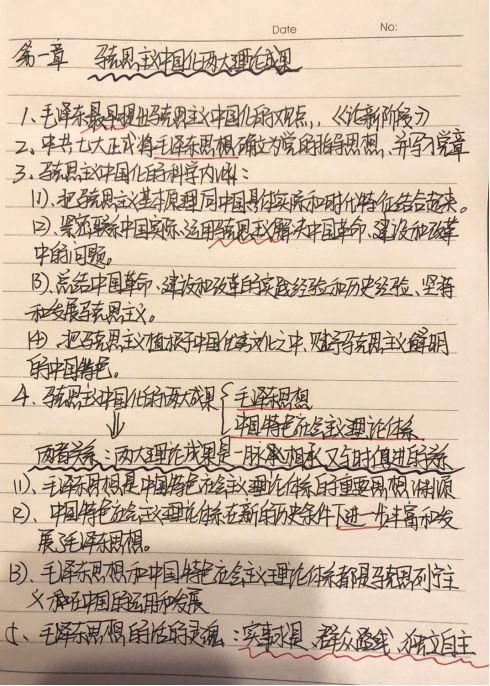 Date No:
第一章 马克思主义中国化两大理论成果
1、毛泽东最早提出马克思主义中国化的观点，《论新阶段》
2、中共七大正式将毛泽东思想确立为党的指导思想，并写入党章
3、马克思主义中国化的科学内涵：
(1)、把马克思主义基本原理同中国具体实际和时代特征结合起来。
(2)、紧密联系中国实际、运用马克思主义解决中国革命、建设和改革
中的问题。
(3)、总结中国革命、建设和改革的实践经验和历史经验、坚持
和发展马克思主义。
(4)、把马克思主义植根于中国优秀文化之中、赋予马克思主义鲜明
的中国特色。
4、马克思主义中国化的两大成果 { 毛泽东思想
中国特色社会主义理论体系
两者关系：两大理论成果是一脉相承又与时俱进的关系
(1)、毛泽东思想是中国特色社会主义理论体系的重要思想渊源
(2)、中国特色社会主义理论体系在新的历史条件下进一步丰富和发
展了毛泽东思想。
(3)、毛泽东思想和中国特色社会主义理论体系都是马克思列宁主
义在中国的运用和发展
5、毛泽东思想的活的灵魂：实事求是、群众路线、独立自主